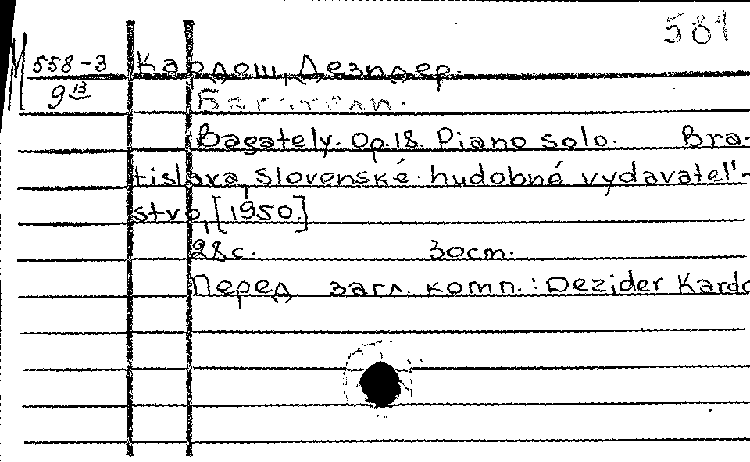 581
М 558-3 Кардош, Дезидер.
9В Багатели.
Bagately. Op.18. Piano solo. Bra-
tislava, Slovenské hudobné vydavateľ-
stvo, [1950.]
28с. 30cm.
Перед загл. комп.: Dezider Kardo